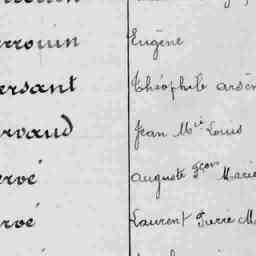 errouin Eugène
ersant Théophile arsèn
ervaud Jean Mie Louis
ervé auguste Fçois Marie
ervé Laurent Pierre M